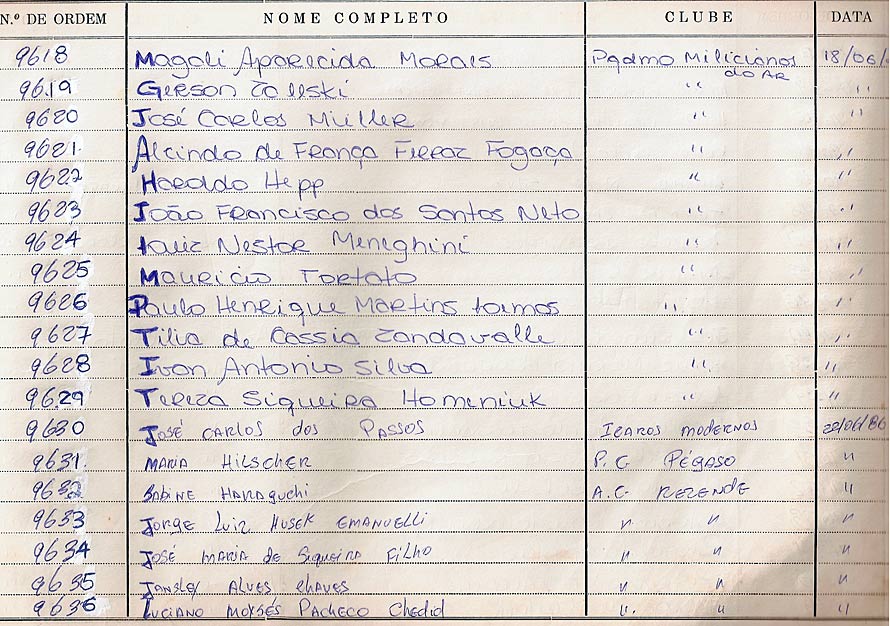 N.º DE ORDEM NOME COMPLETO CLUBE DATA
9618 Magali Aparecida Morais Pqdmo Milicianos do AR 18/06/
9619 Gerson " "
9620 José Carlos Müller " "
9621 Alcindo de França Ferraz Fogaça " "
9622 Haroldo Hepp " "
9623 João Francisco dos Santos Neto " "
9624 Luiz Nestor Meneghini " "
9625 Mauricio Fortato " "
9626 Paulo Henrique Martins " "
9627 Tilia de Cassia Zandavalle " "
9628 Ivan Antonio Silva " "
9629 Tereza Siqueira Homeniuk " "
9630 José Carlos dos Passos Icaros modernos /06/86
9631 Maria Hilscher P.C Pégaso "
9632 Sabine Haraguchi A.C. Rezende "
9633 Jorge Luiz Husek Emanuelli " " "
9634 José Maria de Siqueira Filho " " "
9635 Jansley Alves Chaves " " "
9636 Luciano Moisés Pacheco Chedid " " "